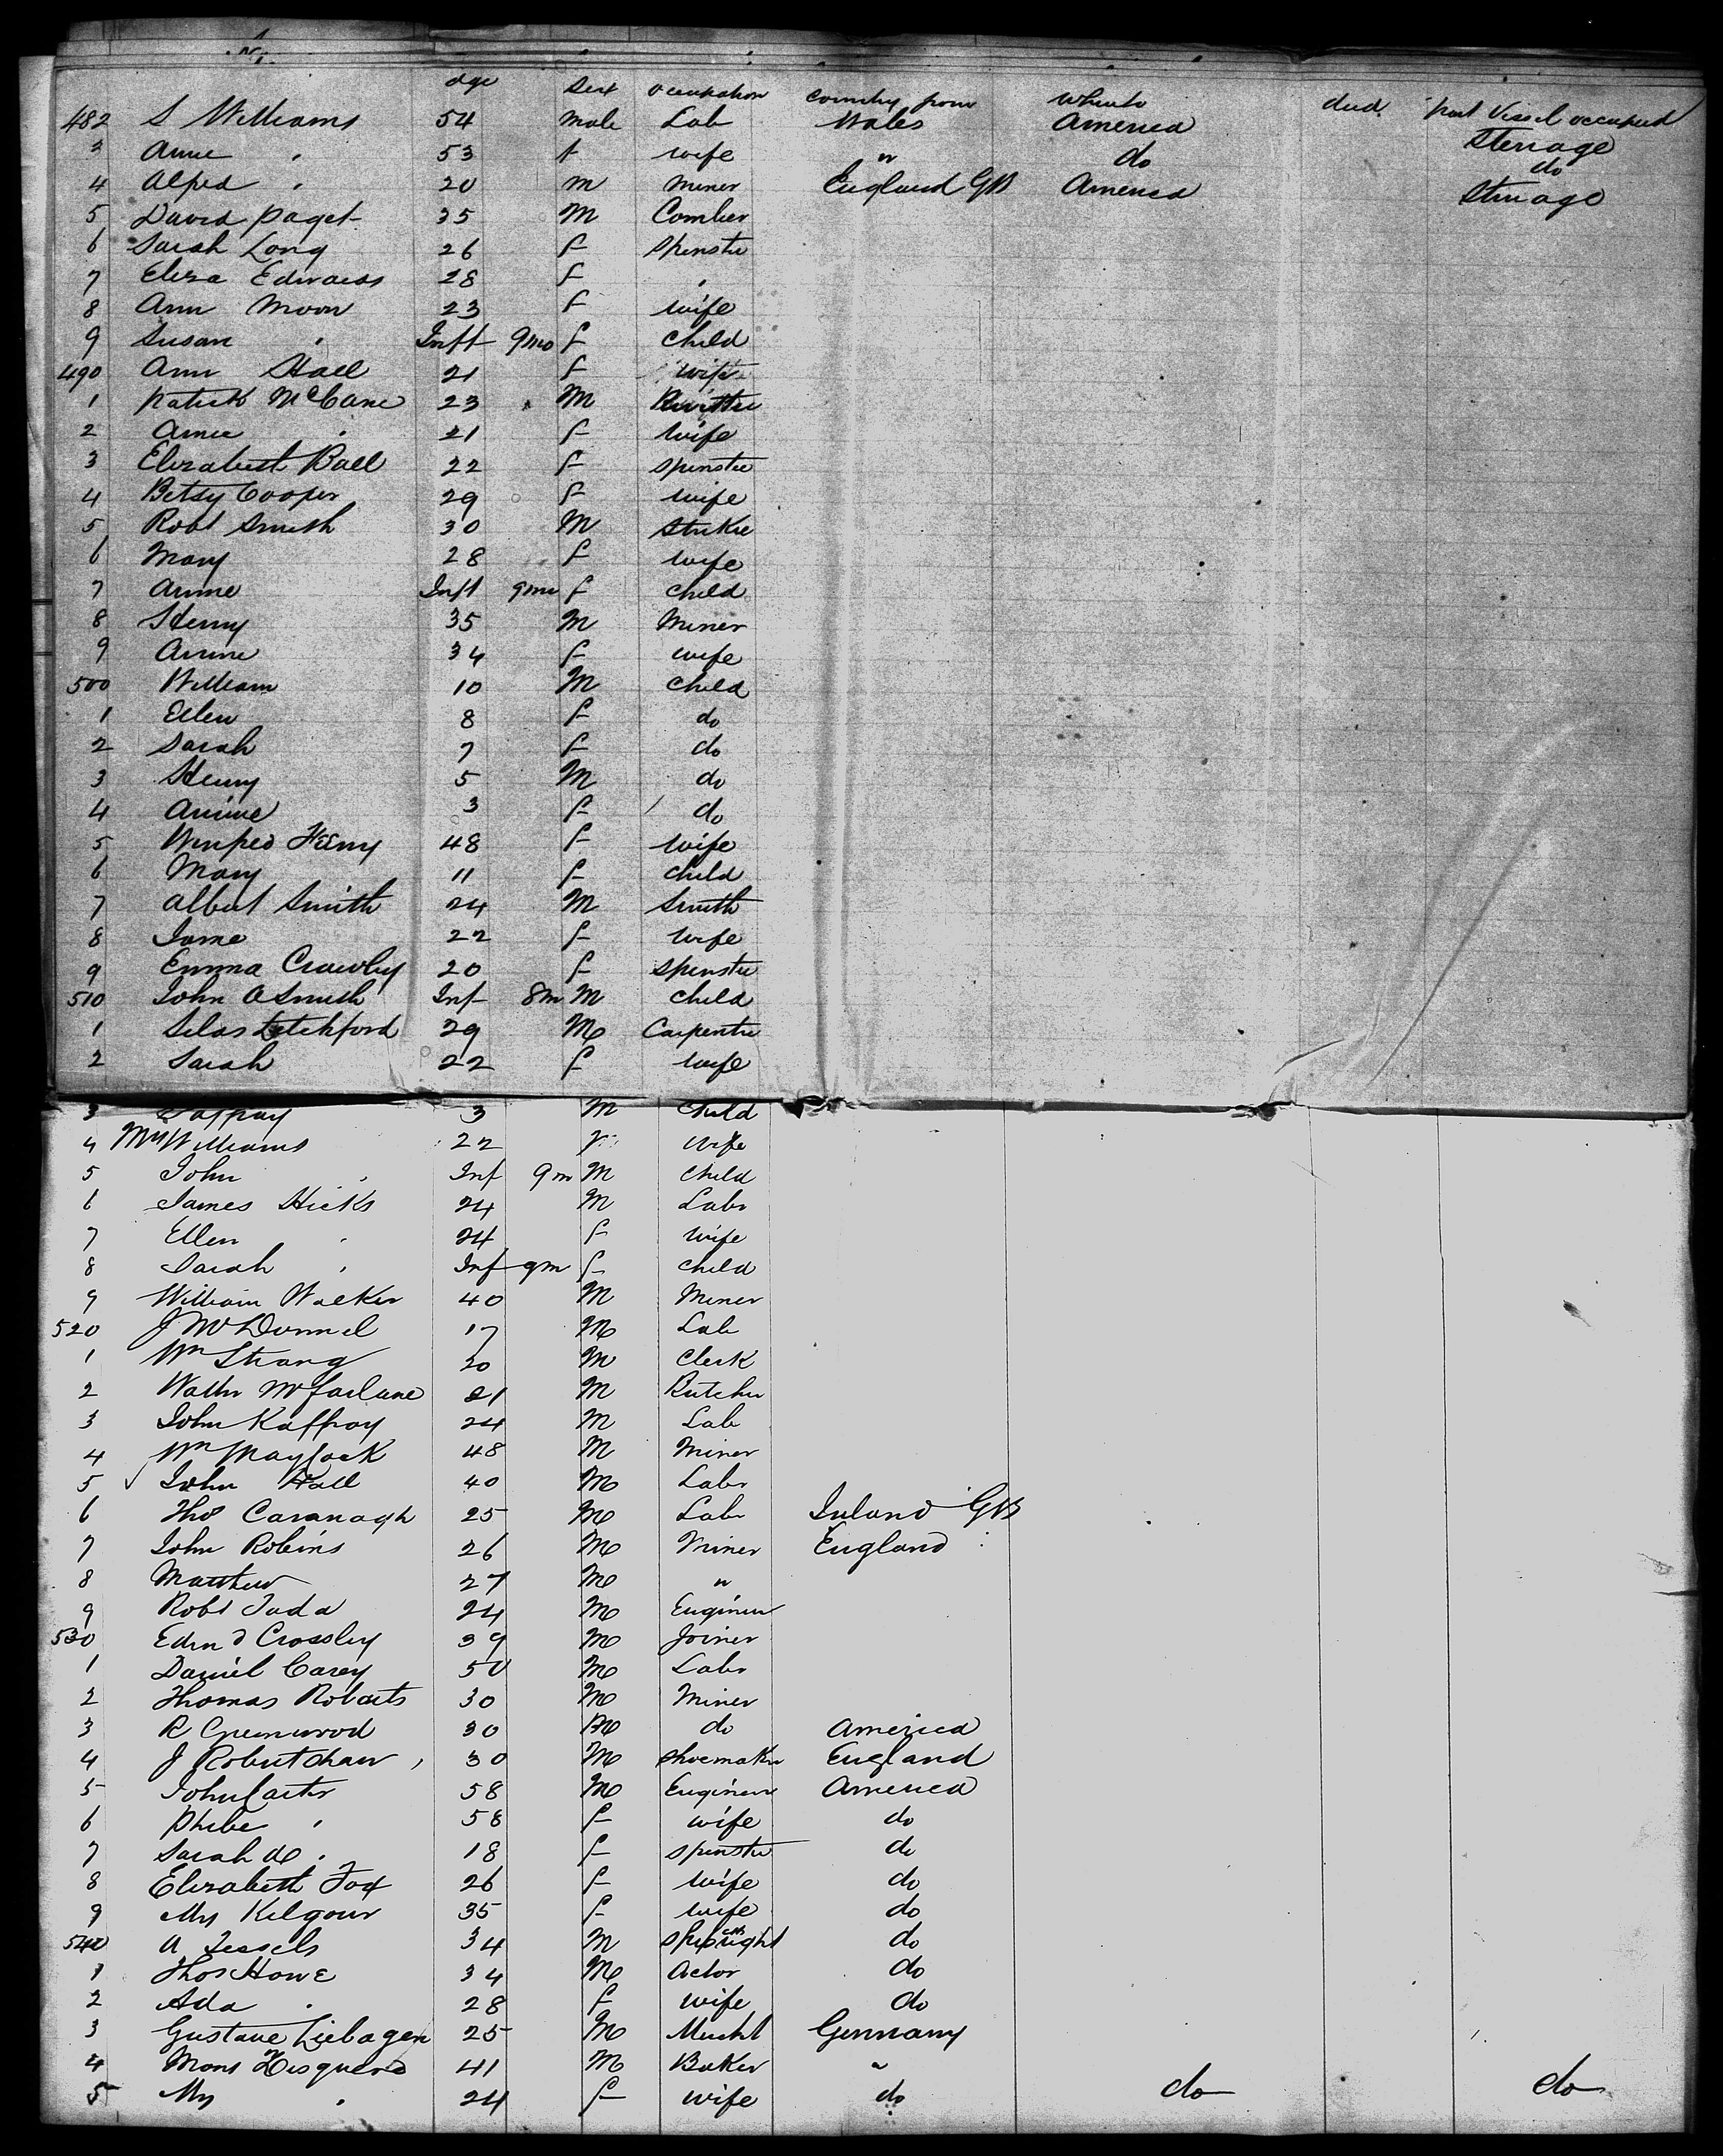 age Sex Occupation Country from Whereto died. part Vessel occupied
482 S Williams 54 Male Lab Wales America Sterrage
3 Anne " 53 f wife " do do
4 Alfred " 20 m miner England GB America Sterrage
5 David Paget 35 M Comber
6 Sarah Long 26 f Spinster
7 Eliza Edwards 28 f "
8 Ann Moon 23 f wife
9 Susan " Inft 9mo f Child
490 Ann Hall 21 f wife
1 Patrick McCane 23 M
2 Annie " 21 f wife
3 Elizabeth Ball 22 f Spinster
4 Betsy Cooper 29 f wife
5 Robt Smith 30 M Striker
6 Mary 28 f wife
7 Annie Inft 9mo f Child
8 Henry 35 M Miner
9 Annie 34 f wife
500 William 10 M Child
1 Ellen 8 f do
2 Sarah 7 f do
3 Henry 5 M do
4 Annie 3 f do
5 Winfred 48 f wife
6 Mary 11 f Child
7 Albert Smith 24 M Smith
8 Jame 22 f wife
9 Emma Crawley 20 f Spinster
510 John A Smith Inf 8m M Child
1 Silas Letchford 29 M Carpenter
2 Sarah 22 f wife
3 3 M Child
4 Mrs Williams 22 wife
5 John " Inf 9m M Child
6 James Hicks 24 M Labr
7 Ellen " 24 f wife
8 Sarah " Inf 9m f Child
9 William Walker 40 M Miner
520 J McDonnel 17 M Lab
1 Wm Strang 20 M Clerk
2 Walter McFarlane 21 M Butcher
3 John Kaffray 24 M Lab
4 Wm Maylock 48 M Miner
5 John Hall 40 M Labr
6 Thos Cavanagh 25 M Labr Ireland GB
7 John Robins 26 M Miner England
8 Matthew 27 M "
9 Robt Todd 24 M Engineer
530 Edmd Crossley 39 M Joiner
1 Daniel Carey 50 M Labr
2 Thomas Roberts 30 M Miner
3 R Greenwood 30 M do America
4 J Robertshaw 30 M Shoemaker England
5 John Carter 58 M Engineer America
6 Phebe " 58 f wife do
7 Sarah do " 18 f Spinster do
8 Elizabeth Fox 26 f wife do
9 Mrs Kilgour 35 f wife do
540 A Tessels 34 M Shipwright do
1 Thos Howe 34 M Actor do
2 Ada " 28 f wife do
3 Gustave Liebagen 25 M Mercht Germany
4 Mons 41 M Baker "
5 Mrs " 24 f wife do do do